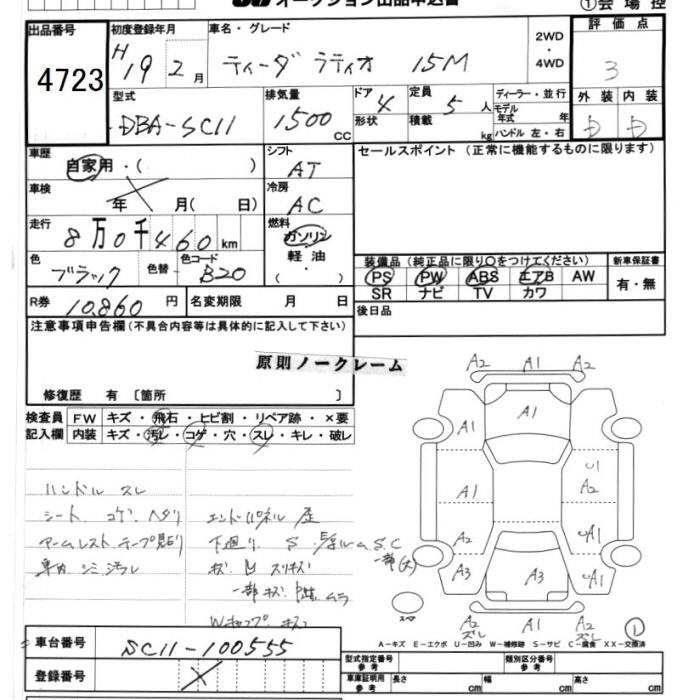 オークション出品申込書
①会場控
出品番号
4723
初度登録年月
H19 2月
車名・グレード
ティーダ ラティオ 15M
2WD
・
4WD
評価点
3
型式
DBA-SC11
排気量
1500cc
ドア
4
形状
定員
5人
積載
kg
ディーラー・並行
モデル
年式 年
ハンドル 左・右
外装 内装
D D
車歴
自家用・( )
シフト
AT
セールスポイント (正常に機能するものに限ります)
車検
年 月( 日)
冷房
AC
走行
8万0千460km
燃料
ガソリン
軽油
( )
色
ブラック
色替
色コード
B20
装備品 (純正品に限り○をつけてください)
PS PW ABS エアB AW
SR ナビ TV カワ
新車保証書
有・無
R券
10,860円
名変期限 月 日
後日品
注意事項申告欄(不具合内容等は具体的に記入して下さい)
原則ノークレーム
修復歴 有 〔箇所 〕
検査員
記入欄
FW キズ・飛石・ヒビ割・リペア跡・×要
内装 キズ・汚レ・コゲ・穴・スレ・キレ・破レ
ハンドル スレ
シート コゲ ヘタリ
エンドパネル 歪
アームレスト テープ貼り
下廻り S
車内 シミ 汚レ
一部(大)
一部キズ
ムラ
A2 A1 A2
A1 A1 U1
A2
A1 A1
A2
A3 A3 A1
A2 A1 A2
ズレ ズレ
スペア
①
A-キズ E-エクボ U-凹み W-補修跡 S-サビ C-腐食 XX-交換済
車台番号
SC11-100555
登録番号
型式指定番号
参考
類別区分番号
参考
車庫証明用
参考
長さ cm
幅 cm
高さ cm